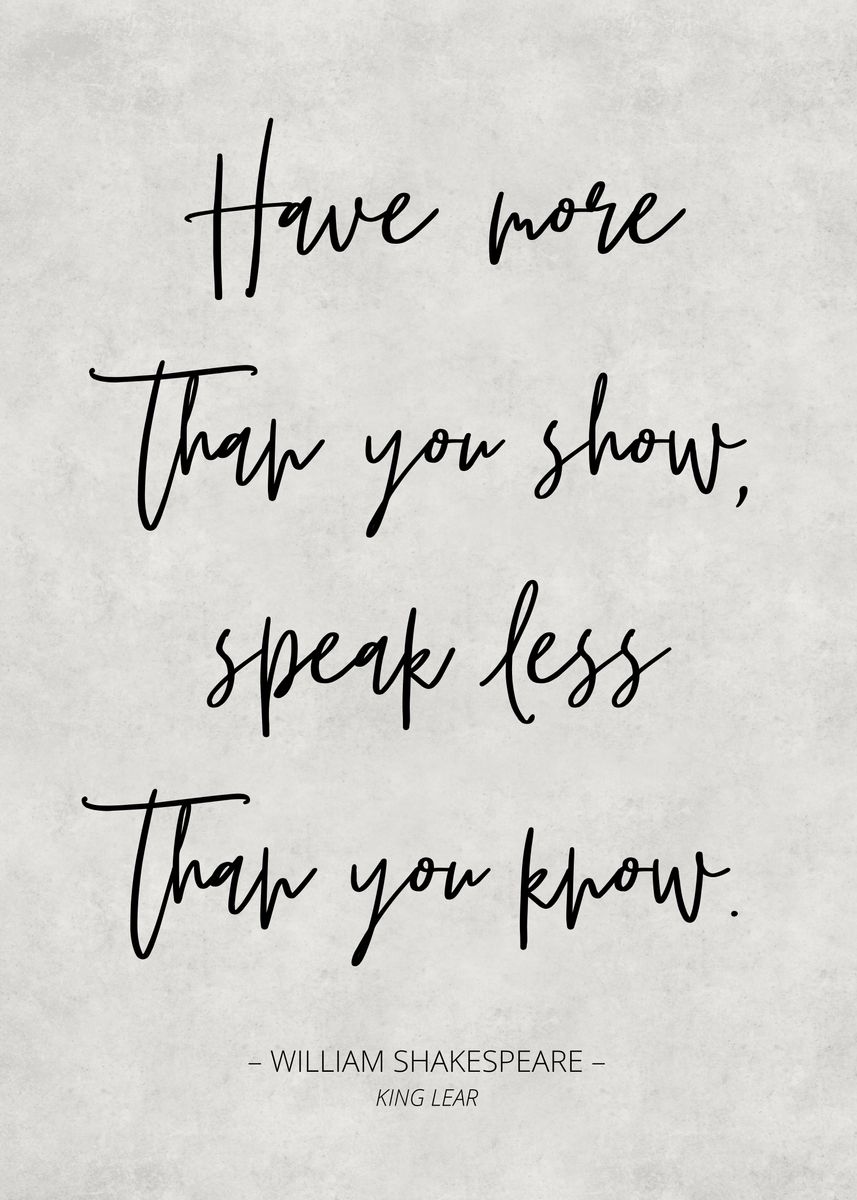 Have more
Than you show,
speak less
Than you know.
– WILLIAM SHAKESPEARE –
KING LEAR